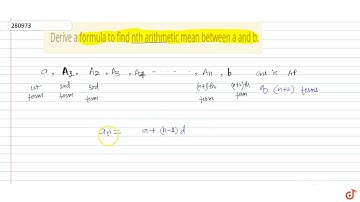 280973
Derive a formula to find nth arithmetic mean between a and b.
a , A1 , A2 , A3 , A4 ........ An , b are in AP
1st 2nd 3rd (n+1)th (n+2)th of (n+2) terms
term term term term term
an = a + (n-1) d